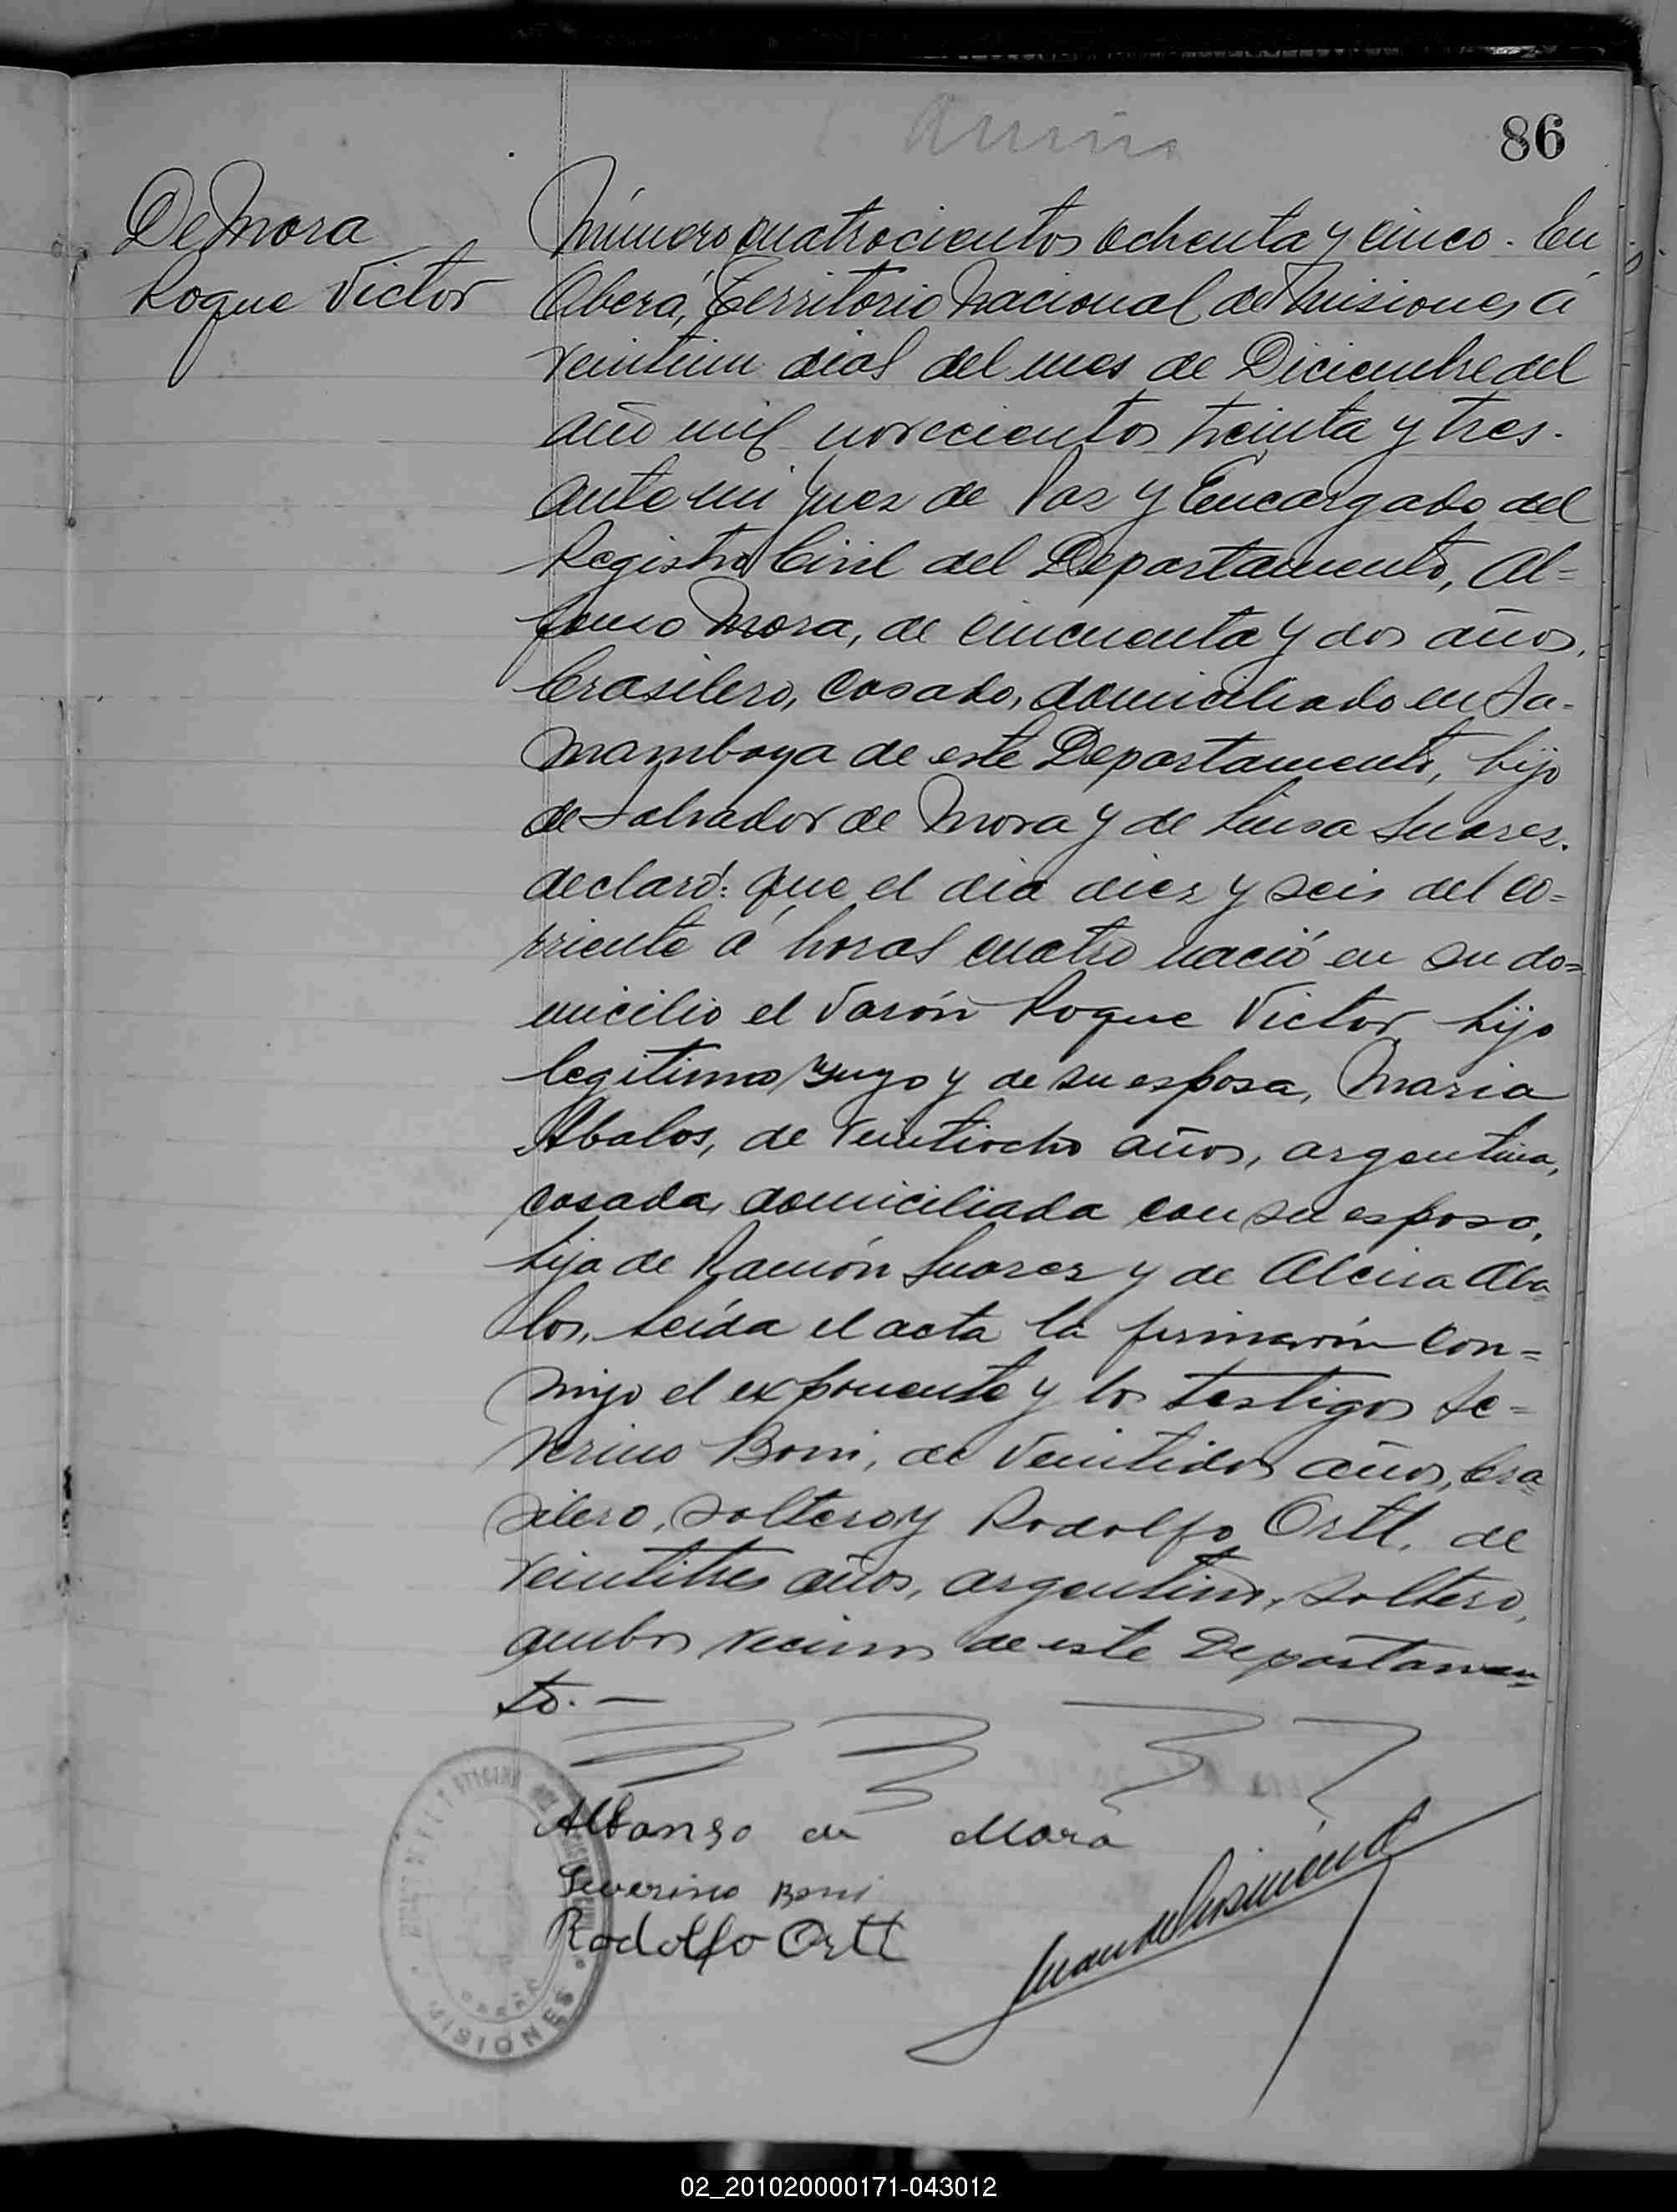 86
De Mora
Roque Victor
Número cuatrocientos ochenta y cinco. En
Oberá, Territorio Nacional de Misiones á
veintiun dias del mes de Diciembre del
año mil novecientos treinta y tres.
ante mi Juez de Paz y Encargado del
Registro Civil del Departamento, Al=
fonso Mora, de cincuenta y dos años,
brasilero, casado, domiciliado en Ta-
mamboya de este Departamento, hijo
de Salvador de Mora y de Luisa Suarez.
declaró: que el dia diez y seis del co=
rriente á horas cuatro nació en su do=
micilio el varón Roque Victor hijo
legitimo suyo y de su esposa, Maria
Abalos, de veintiocho años, argentina,
casada, domiciliada con su esposo,
hija de Ramón Suarez y de Alcira Aba=
los, Leída el acta la firmarón con=
migo el exponente y los testigos Se=
verino Boni, de veintidos años, bra=
silero, soltero y Rodolfo Ortt, de
veintitres años, argentino, soltero,
ambos vecinos de este Departamen=
to. —
Alfonso de Mora
Severino Boni
Rodolfo Ortt
MISIONES
02_201020000171-043012